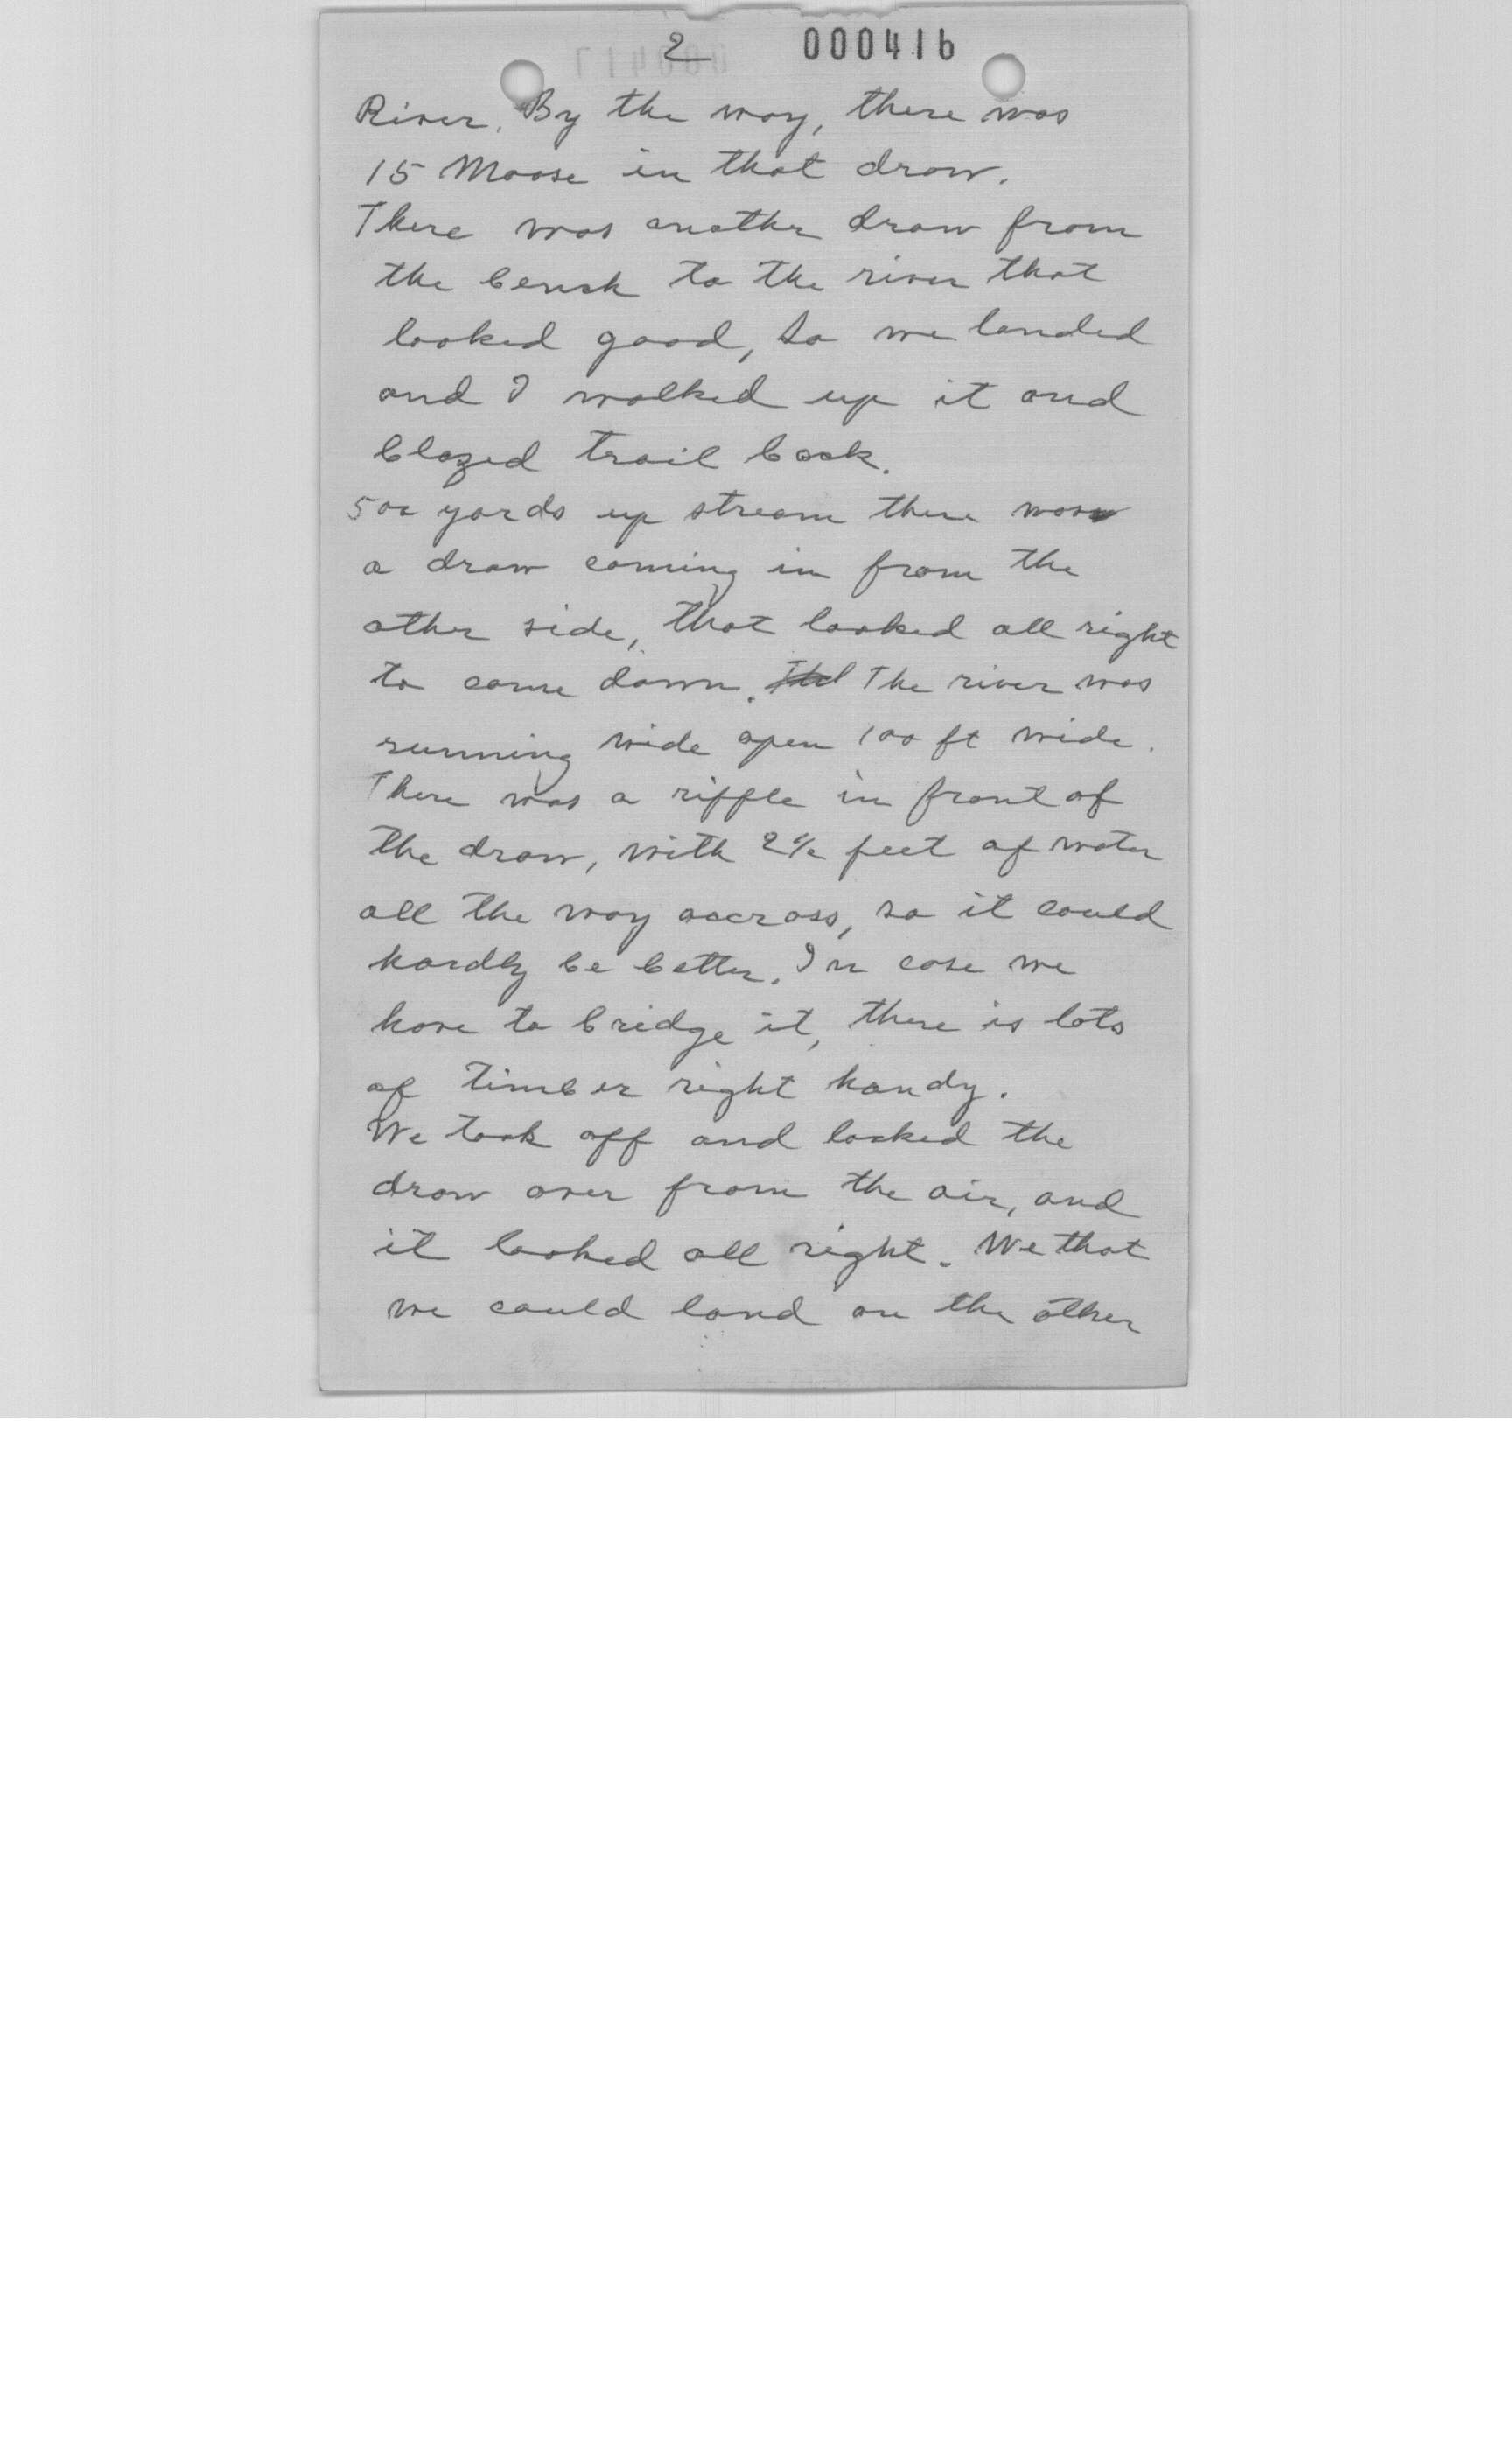 2 000416
River. By the way, there was
15 Moose in that draw.
There was another draw from
the bench to the river that
looked good, so we landed
and I walked up it and
blazed trail back.
500 yards up stream there was
a draw coming in from the
other side, that looked all right
to come down. The river was
running wide open 100 ft wide.
There was a riffle in front of
the draw, with 2½ feet of water
all the way accross, so it could
hardly be better. In case we
have to bridge it, there is lots
of timber right handy.
We took off and looked the
draw over from the air, and
it looked all right. We that
we could land on the other